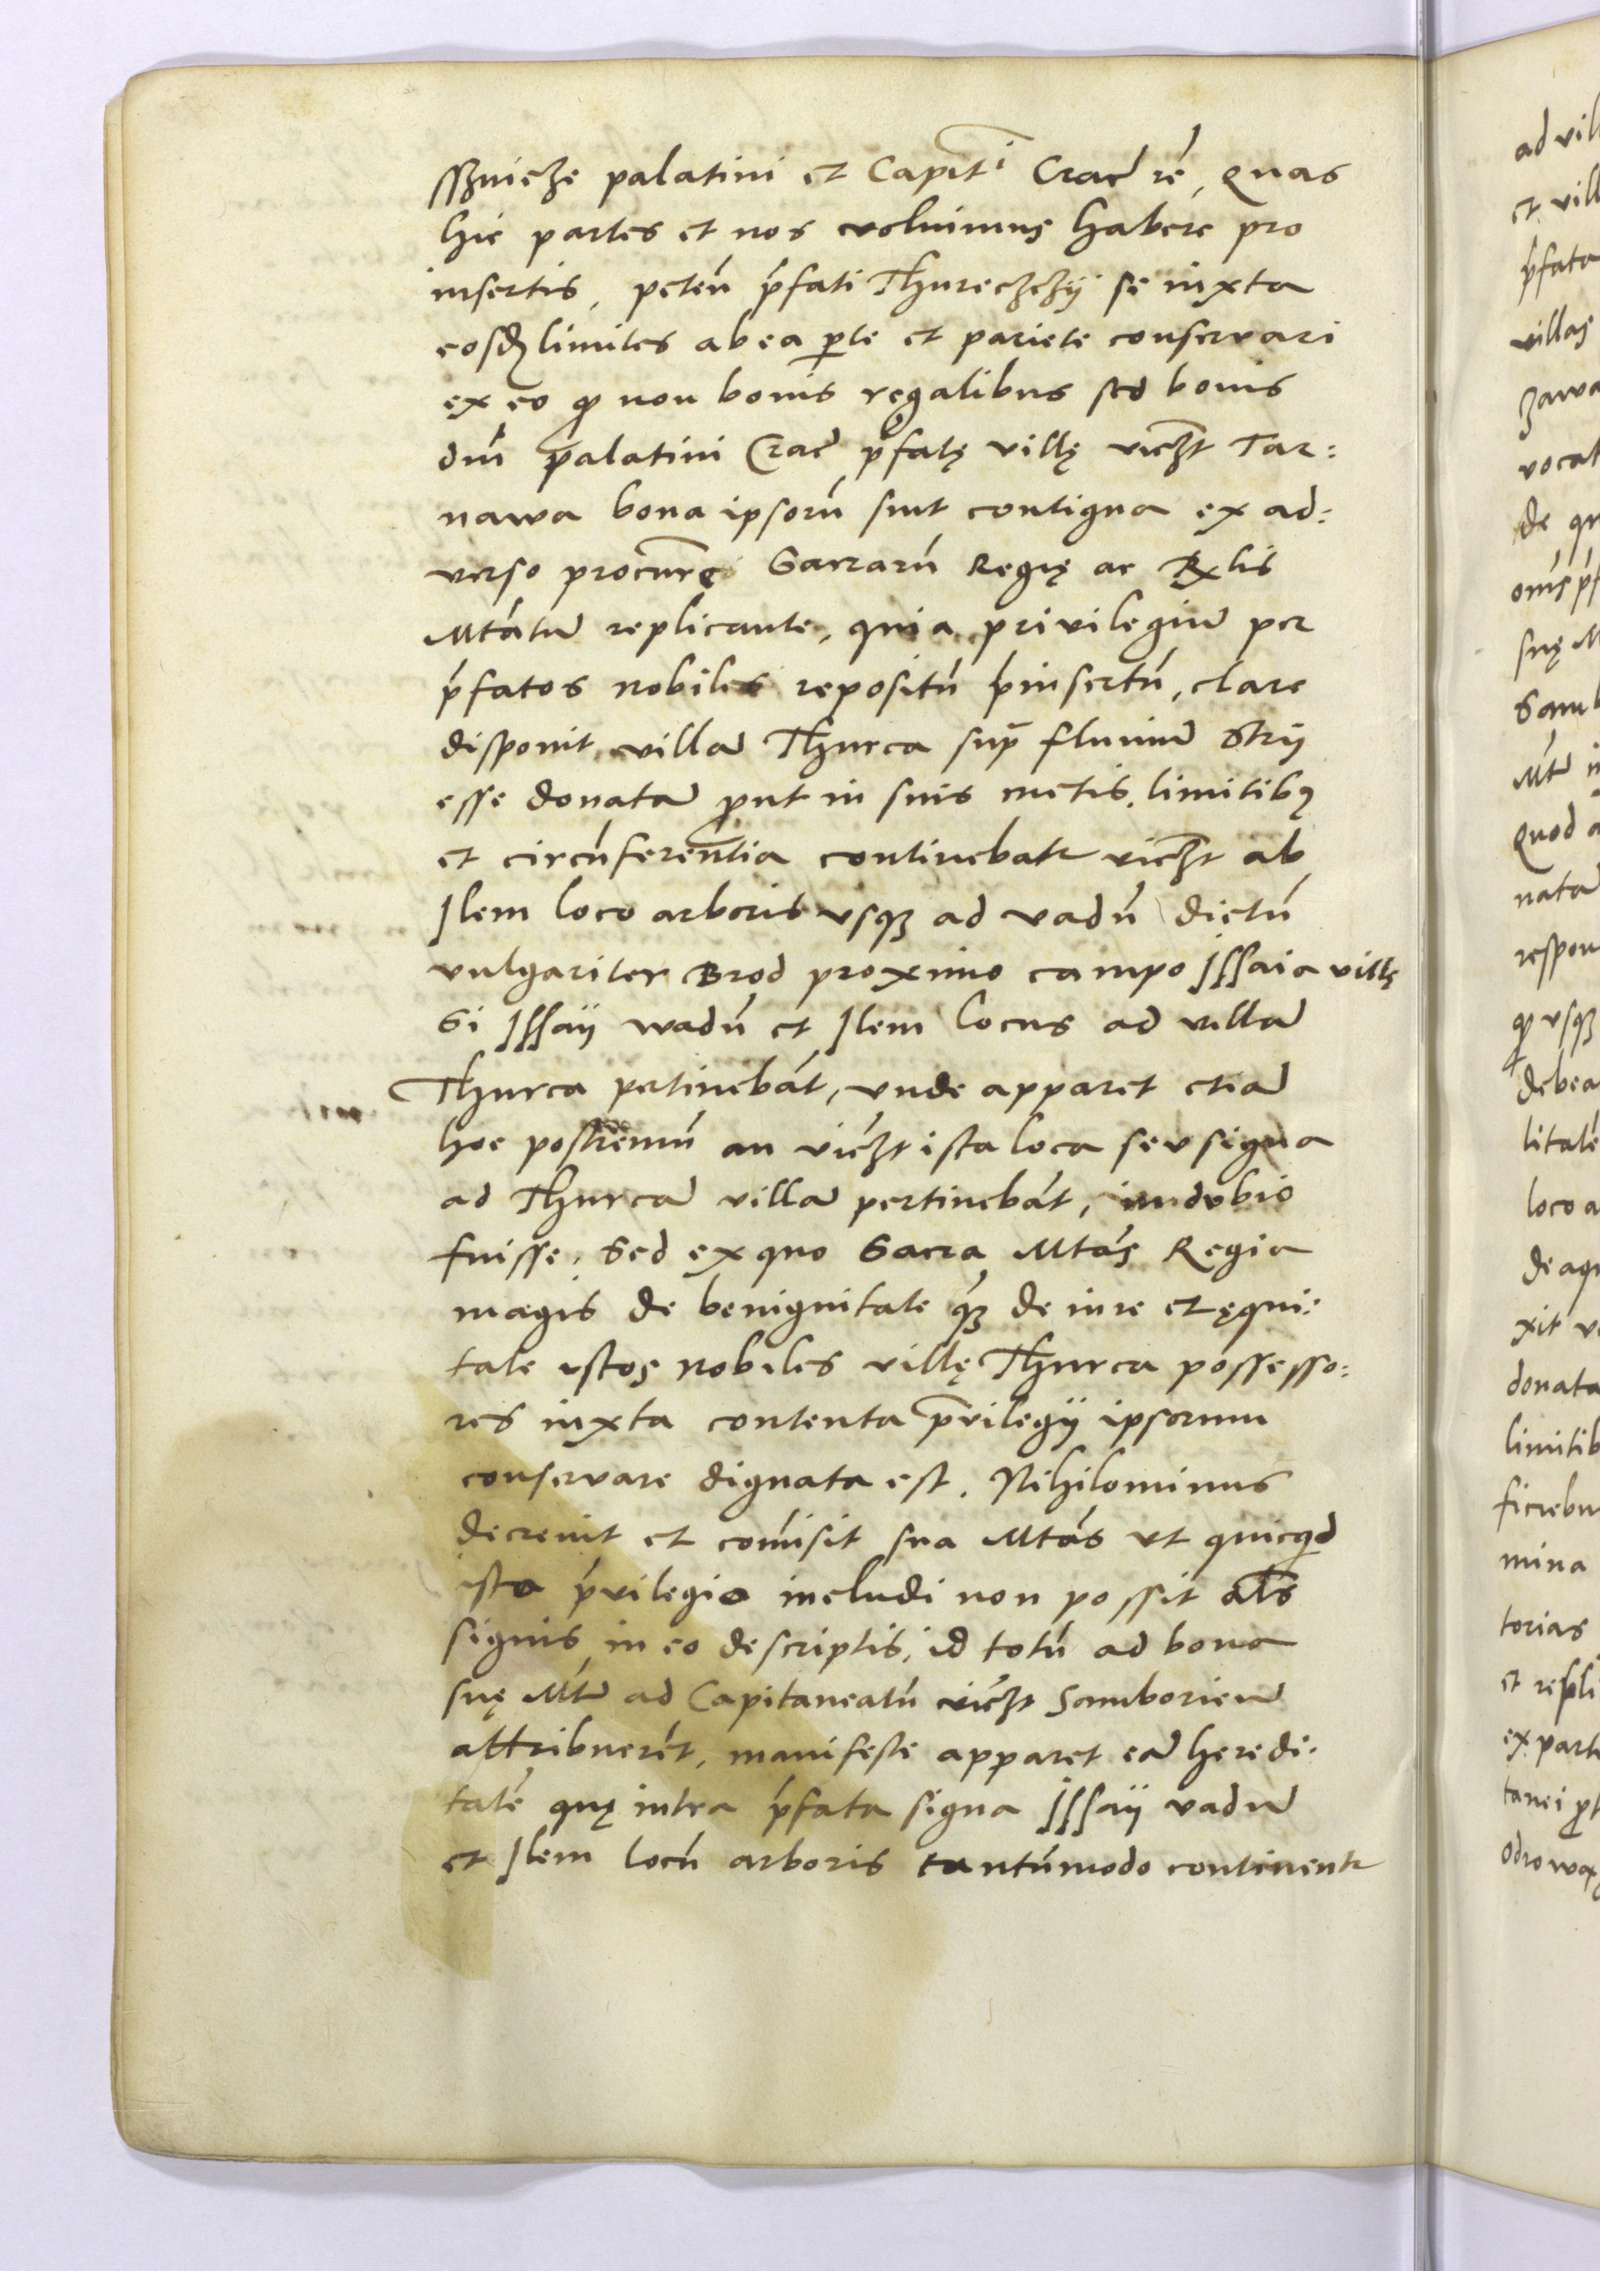 sszniczye palatini et Capit̄i Crac̄ re, Quas
hic partes et nos voluimus habere pro
insertis, peteñ p̄fati Thureczchÿ se iuxta
eosdꝫ limites ab ea p̱te et pariete conservari
ex eo ꝙ non bonis regalibus sed bonis
dm̄ palatini Crac̄ p̄fatę villę viczt Tar:
nawa bona ipsorū sint contigua ex ad:
verso procure Sacrarū Regię ac Rxlis
Mtātum replicante, quia privilegiū per
p̄fatos nobiles repositū p̄insertū, clare
disponit villā Thurca sup̄ fluuiū Strÿ
esse donatā ꝓut in suis metis, limitibꝫ
et circūferentia continebatr viczt ab
Jlem loco arboris vsqꝫ ad vadū dictū
vulgariter Brod proximo campo Jssaia villę
Si Jssaÿ wadū et Jlem locus ad villā
Thurca pertinebāt, vnde apparet etiā
hoc postremū an viczt ista loca seu signa
ad Thurcā villā pertinebāt, in dubio
fuisse, Sed ex quo Sacra Mtās Regia
magis de benignitate qꝫ de iure et ęqui:
tate istos nobiles villę Thurca possesso:
res iuxta contenta p̄vilegÿ ipsorum
conservare dignata est. Nihilominus
decrevit et com̄isit sua Mtās vt quicqd
isto p̄vilegio includi non possit als̄
signis in eo descriptis, id totū ad bona
suę Mtī ad Capitaneatū viczt Samborieñ
attribuerēt, manifeste apparet eā heredi:
tatē quę intra p̄fata signa Jssaÿ vadū
et Jlem locū arboris tantūmodo continentr
ad vil
et vill
p̄fata
villas
zawa
vocat
de qu
om̄s p̄f
suę M
Samb
Mtī i
Quod a
nata
respon
ꝙ vsqꝫ
debea
litatē
loco a
de aqu
xit v
donata
limitib
ficiebu
mina
torias
et repli
ex part
tanei ꝓt
Odrowaz